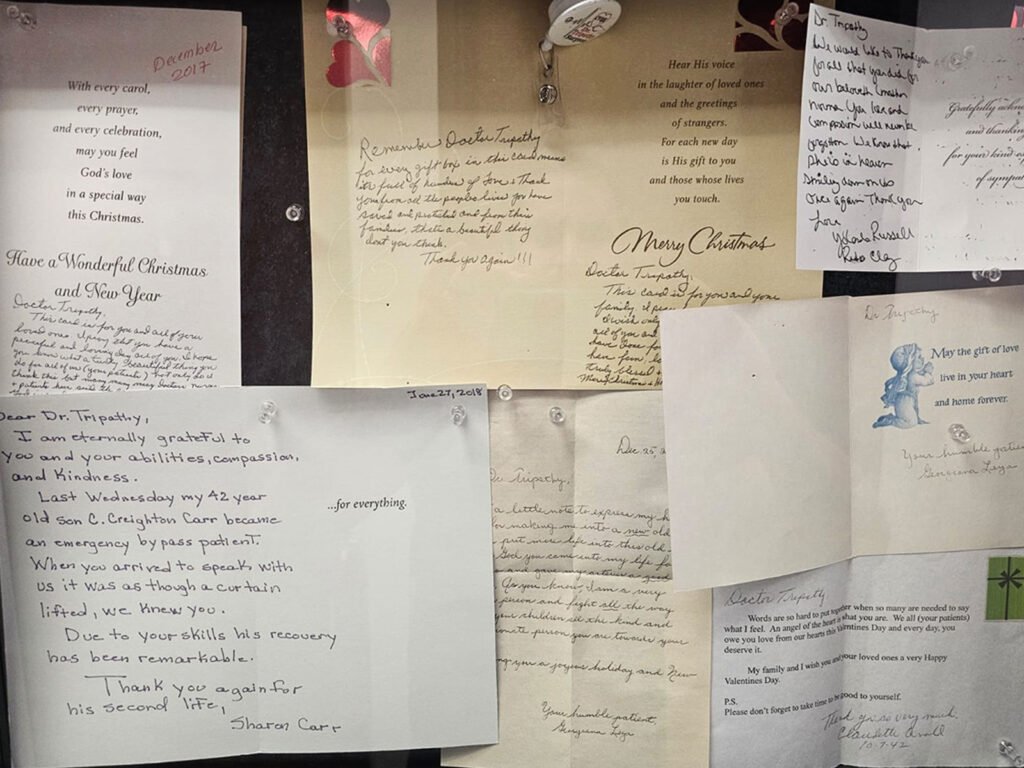 December
2017
With every carol,
every prayer,
and every celebration,
may you feel
God's love
in a special way
this Christmas.
Have a Wonderful Christmas
and New Year
Doctor Tripathy,
This card is for you and all of your
loved ones. I pray that you have a
peaceful and loving day all of you. I hope
you know what a truly beautiful thing you
do for all of us (your patients) not only do I
think this but many many many Doctors, nurses
Remember Doctor Tripathy
for every gift box in this card means
its full of hundreds of Love & Thank
you from all the peoples lives you have
saved and protected and from their
families, thats a beautiful thing
dont you think.
Thank you again!!!
Hear His voice
in the laughter of loved ones
and the greetings
of strangers.
For each new day
is His gift to you
and those whose lives
you touch.
Merry Christmas
Doctor Tripathy,
This card is for you and your
family. I pray
I wish only
all of you and
have done for
truly blessed
Merry Christmas
Dr. Tripathy
We would like to Thank you
for all that you did for
our beloved
Norma. You love and
Compassion will never be
forgotten. We know that
She is in heaven
smiling down on us
Once again Thank you
Love
Russell
Gratefully
and thanking
for your kind
of sympathy
Dear Dr. Tripathy,
June 27, 2018
I am eternally grateful to
you and your abilities, compassion,
and Kindness.
Last Wednesday my 42 year
old son C. Creighton Carr became
an emergency bypass patient.
When you arrived to speak with
us it was as though a curtain
lifted, we knew you.
Due to your skills his recovery
has been remarkable.
Thank you again for
his second life,
Sharon Carr
...for everything.
Dec. 25,
Dr Tripathy,
a little note to express my
for making me into a new old
put more life into this old
God you came into my life
and gave my arteries a good
As you know, I am a very
person and fight all the way
your children all the kind and
person you are towards your
you a joyous holiday and New
Your humble patient,
Georgiana
Dr Tripathy
May the gift of love
live in your heart
and home forever.
Your humble patient
Georgiana
Doctor Tripathy
Words are so hard to put together when so many are needed to say
what I feel. An angel of the heart is what you are. We all (your patients)
owe you love from our hearts this Valentines Day and every day, you
deserve it.
My family and I wish you and your loved ones a very Happy
Valentines Day.
P.S.
Please don't forget to take time to be good to yourself.
Thank you so very much,
Claudette
10-7-42